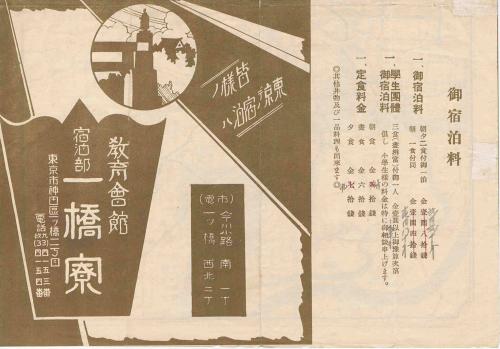 御宿泊料
一、御宿泊料
朝夕二食付御一泊 金壹圓八拾錢
朝一食付同 金壹圓四拾錢
一、學生團體御宿泊料
三食(晝辨當)付御一人 金壹圓以上御豫算次第
但し 小學生様の料金は特に御相談申上げます。
一、定食料金
朝食 拾錢
晝食 金六拾錢
夕食 金七拾錢
◎其他丼物及び一品料理も出来ます◎
皆様ノ
東京ノ御宿泊ハ
教育會館
宿泊部
一橋寮
東京市神田區一ツ橋二丁目
電話九段(33)
四一五三番
四一五四番
市 今川小路 南一丁
(電) 一ツ橋 西北二丁